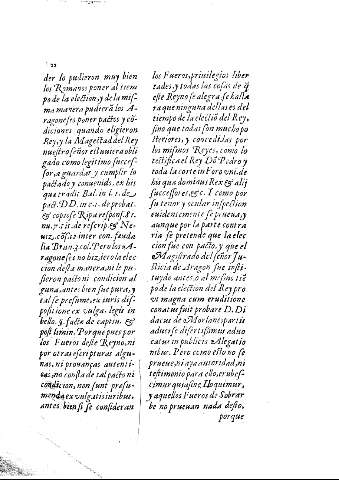 22
der lo pudieron muy bien
los Romanos poner al tiem
po de la election, y de la mis-
ma manera pudierã los A-
ragoneses poner pactos y cõ-
diciones quando eligieron
Rey, y la Magestad del Rey
nuestro señor estuuiera obli
gado como legitimo succes-
sor, a guardar y cumplir lo
pactado y conuenido, ex his
que tradit Bal. in l. 1. de
pact. DD. in c. 1. de probat.
& copiose Ripa respons. 1.
de rescrip. & Ne-
uiz, cõs. inter con. feuda
lia Brun. Pero los A-
ragoneses no hizierõ la ele
cion desta manera, ni le pu
sieron pacto ni condicion al
guna, antes bien fue pura, y
tal se presume, ex iuris dis-
positione ex vulga. legit in
bello. §. facta de captiu. &
post limin. Porque pues por
los Fueros deste Reyno, ni
por otras escripturas algu-
nas, ni prouanças autenti-
cas, no consta de tal pacto ni
condicion, non sunt præsu-
menda ex vulgatis iuribus,
antes bien si se consideran
los Fueros, priuilegios liber
tades, y todas las cosas de q̃
este Reyno se alegra se halla
ra que ninguna dellas es del
tiempo de la electiõ del Rey,
sino que todas son mucho po
steriores, y concedidas por
los mismos Reyes, como lo
testifica el Rey Dõ Pedro y
toda la corte in Foro vni. de
his quæ dominus Rex & alij
successores, &c. I como por
su tenor y ocular inspection
euidentemente se prueua, y
aunque por la parte contra
ria se pretende que la elec-
cion fue con pacto, y que el
Magistrado del señor Ju-
sticia de Aragon fue insti-
tuydo antes, o al mismo tiẽ
po de la election del Rey pro
vt magna cum eruditione
conatus fuit probare D. Di
dacus de Morlanes partis
aduersæ disertissimus aduo
catus in publicis Alegatio
nibus. Pero como esto no se
prueue, ni aya autoridad, ni
testimonio para ello, erubes-
cimus quia sine lege loquimur,
y aquellos Fueros de Sobrar
be no prueuan nada desto,
porque